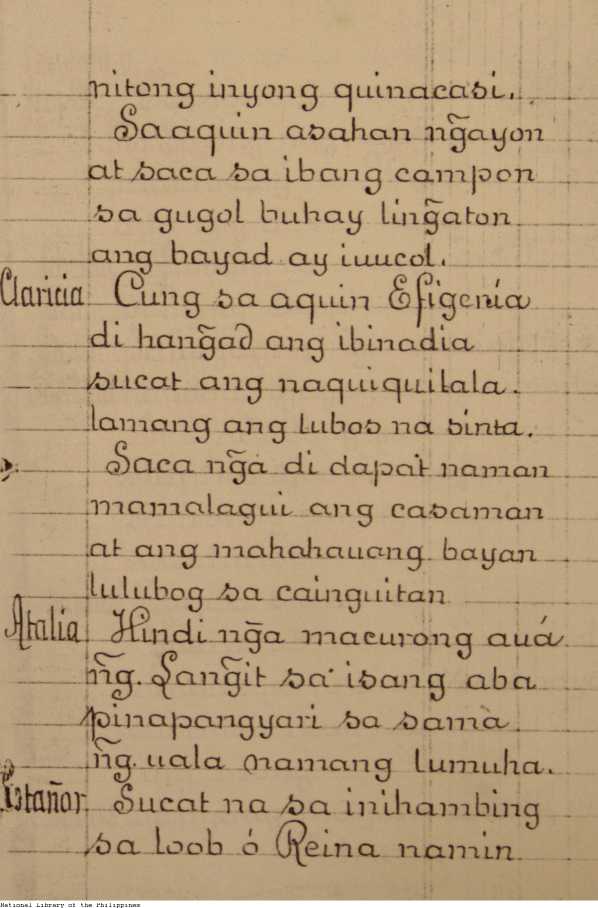 nitong inyong quinacasi.
Sa aquin asahan ng̃ayon
at saca sa ibang campon
sa gugol buhay ling̃aton
ang bayad ay iuucol.
Claricia Cung sa aquin Efigenía
di hang̃ad ang ibinadia
sucat ang naquiquilala.
lamang ang lubos na sinta.
Saca ng̃a di dapat naman
mamalagui ang casaman
at ang mahahauang bayan
lulubog sa cainguitan
Atalia Hindi ng̃a macurong auá
ñg. Lang̃it sa isang aba
pinapangyari sa samà.
ñg. uala namang lumuha.
Estañor. Sucat na sa inihambing
sa loob ó Reina namin
National Library of the Philippines